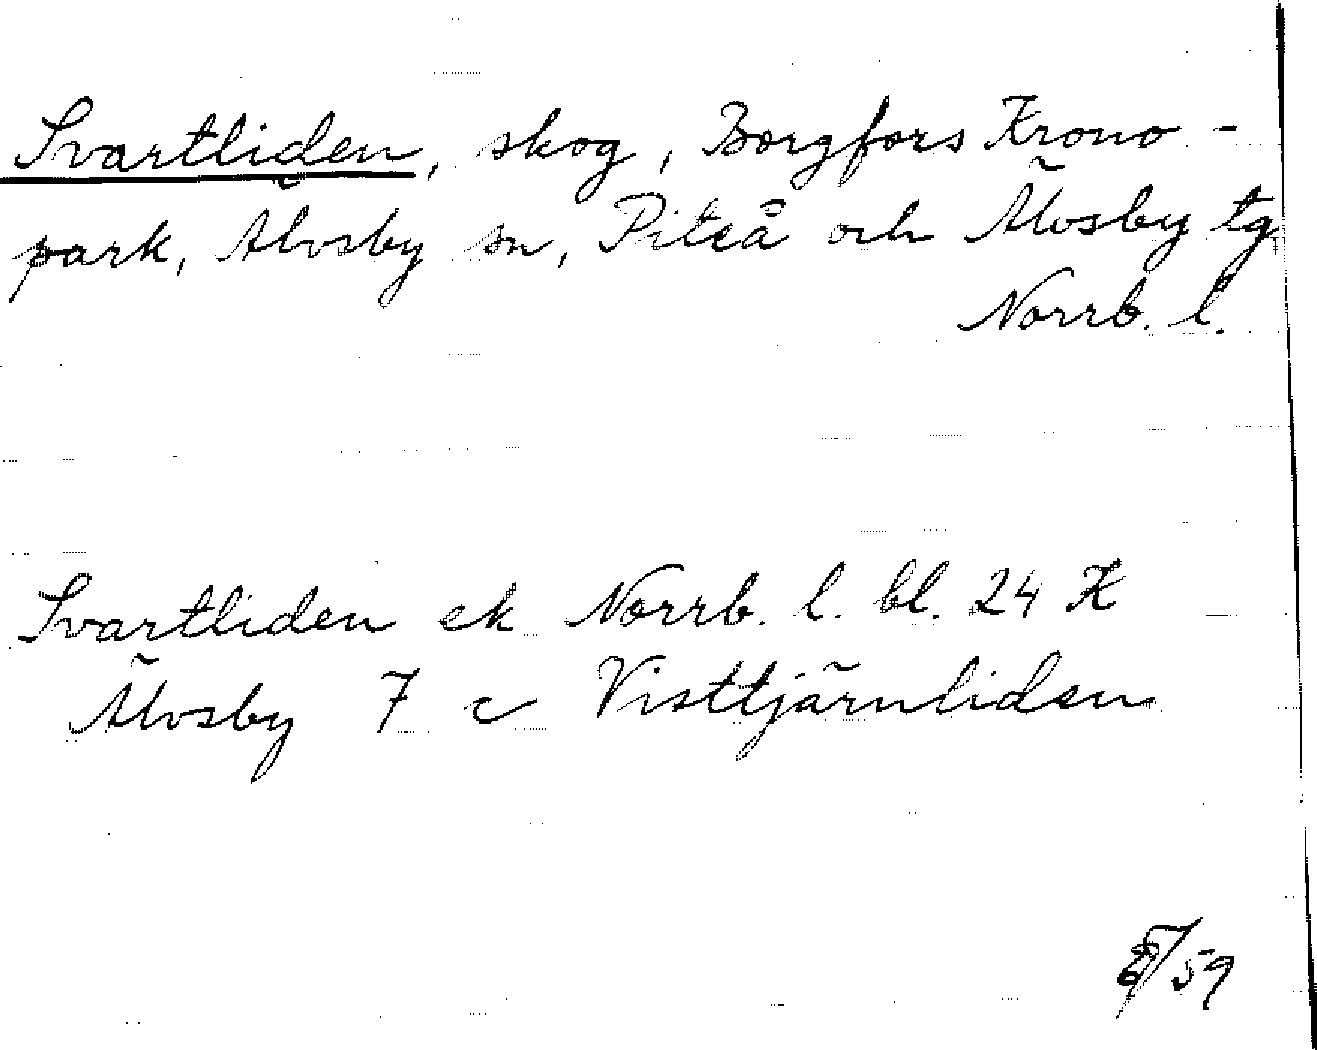 Svartliden, skog, Borgfors Krono-
park, Älvsby sn, Piteå och Älvsby tg
Norrb. l.
Svartliden ek Norrb. l. bl. 24 K
Älvsby 7 c Visttjärnliden
/59